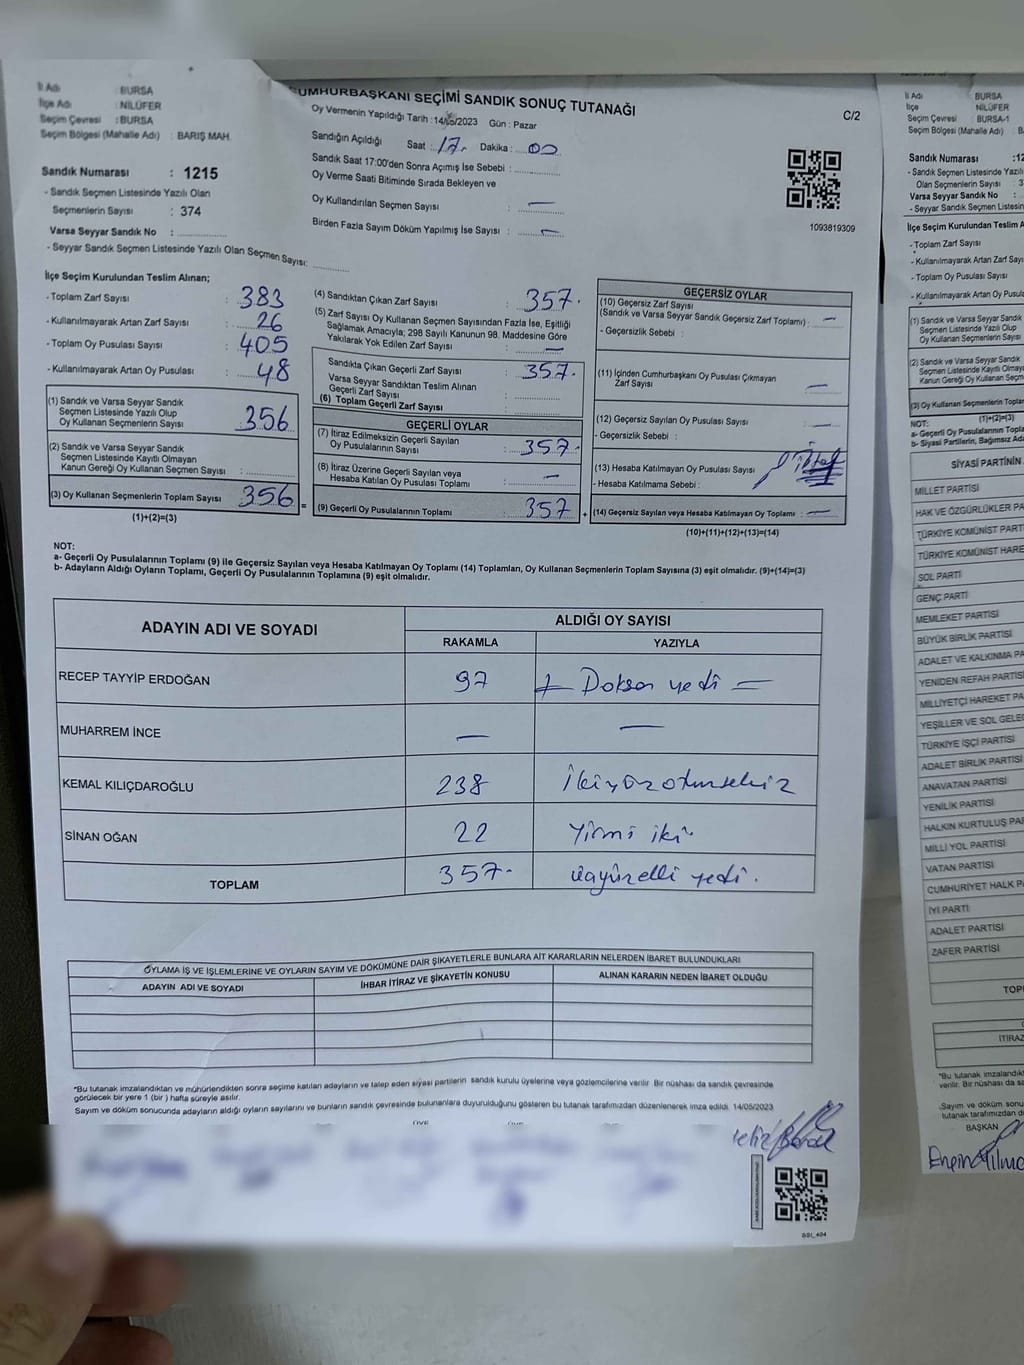 İl Adı : BURSA
İlçe Adı : NİLÜFER
Seçim Çevresi : BURSA
Seçim Bölgesi (Mahalle Adı) : BARIŞ MAH.
Sandık Numarası : 1215
- Sandık Seçmen Listesinde Yazılı Olan
Seçmenlerin Sayısı : 374
Varsa Seyyar Sandık No :
- Seyyar Sandık Seçmen Listesinde Yazılı Olan Seçmen Sayısı:
CUMHURBAŞKANI SEÇİMİ SANDIK SONUÇ TUTANAĞI
Oy Vermenin Yapıldığı Tarih : 14/05/2023 Gün : Pazar
Sandığın Açıldığı Saat : 17. Dakika : 00
Sandık Saat 17:00'den Sonra Açımış İse Sebebi :
Oy Verme Saati Bitiminde Sırada Bekleyen ve
Oy Kullandırılan Seçmen Sayısı : —
Birden Fazla Sayım Döküm Yapılmış İse Sayısı : —
C/2
1093819309
İlçe Seçim Kurulundan Teslim Alınan;
- Toplam Zarf Sayısı : 383
- Kullanılmayarak Artan Zarf Sayısı : 26
- Toplam Oy Pusulası Sayısı : 405
- Kullanılmayarak Artan Oy Pusulası : 48
(1) Sandık ve Varsa Seyyar Sandık
Seçmen Listesinde Yazılı Olup
Oy Kullanan Seçmenlerin Sayısı : 356
(2) Sandık ve Varsa Seyyar Sandık
Seçmen Listesinde Kayıtlı Olmayan
Kanun Gereği Oy Kullanan Seçmen Sayısı :
(3) Oy Kullanan Seçmenlerin Toplam Sayısı : 356
(1)+(2)=(3)
(4) Sandıktan Çıkan Zarf Sayısı : 357.
(5) Zarf Sayısı Oy Kullanan Seçmen Sayısından Fazla İse, Eşitliği
Sağlamak Amacıyla; 298 Sayılı Kanunun 98. Maddesine Göre
Yakılarak Yok Edilen Zarf Sayısı : —
Sandıkta Çıkan Geçerli Zarf Sayısı : 357.
Varsa Seyyar Sandıktan Teslim Alınan
Geçerli Zarf Sayısı :
(6) Toplam Geçerli Zarf Sayısı :
GEÇERLİ OYLAR
(7) İtiraz Edilmeksizin Geçerli Sayılan
Oy Pusulalarının Sayısı : 357.
(8) İtiraz Üzerine Geçerli Sayılan veya
Hesaba Katılan Oy Pusulası Toplamı : —
(9) Geçerli Oy Pusulalarının Toplamı : 357
=
+
GEÇERSİZ OYLAR
(10) Geçersiz Zarf Sayısı
(Sandık ve Varsa Seyyar Sandık Geçersiz Zarf Toplamı) : —
- Geçersizlik Sebebi :
(11) İçinden Cumhurbaşkanı Oy Pusulası Çıkmayan
Zarf Sayısı : —
(12) Geçersiz Sayılan Oy Pusulası Sayısı : —
- Geçersizlik Sebebi :
(13) Hesaba Katılmayan Oy Pusulası Sayısı
- Hesaba Katılmama Sebebi :
(14) Geçersiz Sayılan veya Hesaba Katılmayan Oy Toplamı : —
(10)+(11)+(12)+(13)=(14)
NOT:
a- Geçerli Oy Pusulalarının Toplamı (9) ile Geçersiz Sayılan veya Hesaba Katılmayan Oy Toplamı (14) Toplamları, Oy Kullanan Seçmenlerin Toplam Sayısına (3) eşit olmalıdır. (9)+(14)=(3)
b- Adayların Aldığı Oyların Toplamı, Geçerli Oy Pusulalarının Toplamına (9) eşit olmalıdır.
ADAYIN ADI VE SOYADI ALDIĞI OY SAYISI
RAKAMLA YAZIYLA
RECEP TAYYİP ERDOĞAN 97 Doksan yedi =
MUHARREM İNCE — —
KEMAL KILIÇDAROĞLU 238 İkiyüzotuzsekiz
SİNAN OĞAN 22 Yirmi iki.
TOPLAM 357. üçyüzelli yedi.
OYLAMA İŞ VE İŞLEMLERİNE VE OYLARIN SAYIM VE DÖKÜMÜNE DAİR ŞİKAYETLERLE BUNLARA AİT KARARLARIN NELERDEN İBARET BULUNDUKLARI
ADAYIN ADI VE SOYADI İHBAR İTİRAZ VE ŞİKAYETİN KONUSU ALINAN KARARIN NEDEN İBARET OLDUĞU
*Bu tutanak imzalandıktan ve mühürlendikten sonra seçime katılan adayların ve talep eden siyasi partilerin sandık kurulu üyelerine veya gözlemcilerine verilir. Bir nüshası da sandık çevresinde
görülecek bir yere 1 (bir) hafta süreyle asılır.
Sayım ve döküm sonucunda adayların aldığı oyların sayılarını ve bunların sandık çevresinde bulunanlara duyurulduğunu gösteren bu tutanak tarafımızdan düzenlenerek imza edildi. 14/05/2023
İl Adı BURSA
İlçe NİLÜFER
Seçim Çevresi BURSA-1
Seçim Bölgesi (Mahalle Adı) : B
Sandık Numarası :12
- Sandık ve Varsa Seyyar Sandık
Seçmen Listesinde
Olan Seçmenlerin Sayısı : 3
Varsa Seyyar Sandık No :
İlçe Seçim Kurulundan Teslim
- Toplam Zarf Sayısı
- Kullanılmayarak Artan Zarf
- Toplam Oy Pusulası Sayısı
- Kullanılmayarak Artan Oy
(1) Sandık ve Varsa Seyyar Sandık
Seçmen Listesinde Yazılı Olup
Oy Kullanan Seçmenlerin
(2) Sandık ve Varsa Seyyar Sandık
Seçmen Listesinde Kayıtlı
Kanun Gereği Oy Kullanan
(3) Oy Kullanan Seçmenlerin
(1)+(2)=(3)
NOT:
a- Geçerli Oy Pusulalarının
b- Siyasi Partilerin, Bağımsız
SİYASİ PARTİNİN
MİLLET PARTİSİ
HAK VE ÖZGÜRLÜKLER PA
TÜRKİYE KOMÜNİST PARTİ
TÜRKİYE KOMÜNİST HARE
SOL PARTİ
GENÇ PARTİ
MEMLEKET PARTİSİ
BÜYÜK BİRLİK PARTİSİ
ADALET VE KALKINMA PA
YENİDEN REFAH PARTİSİ
MİLLİYETÇİ HAREKET PA
YEŞİLLER VE SOL GELE
TÜRKİYE İŞÇİ PARTİSİ
ADALET BİRLİK PARTİSİ
ANAVATAN PARTİSİ
YENİLİK PARTİSİ
HALKIN KURTULUŞ PAR
MİLLİ YOL PARTİSİ
VATAN PARTİSİ
CUMHURİYET HALK PA
İYİ PARTİ
ADALET PARTİSİ
ZAFER PARTİSİ
TOPL
İTİRAZ
*Bu tutanak imzalandık
verilir. Bir nüshası da sa
Sayım ve döküm sonu
tutanak tarafımızdan d
BAŞKAN